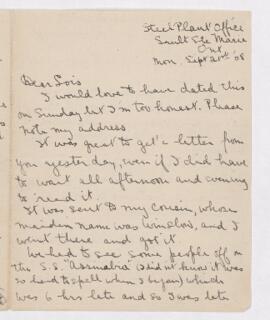 Steel Plant Office
Sault Ste Marie
Ont
Mon. Sept 21st '08
Dear Lois
I would love to have dated this
on Sunday but I'm too honest. Please
note my address
It was great to get a letter from
you yesterday, even if I did have
to wait all afternoon and evening
to read it.
It was sent to my cousin, whose
maiden name was Winslow, and I
went there and got it
We had to see some people off on
the S.S. "Assiniboia" (I did not know it was
so hard to spell when I began) which
was 6 hrs late and so I was late